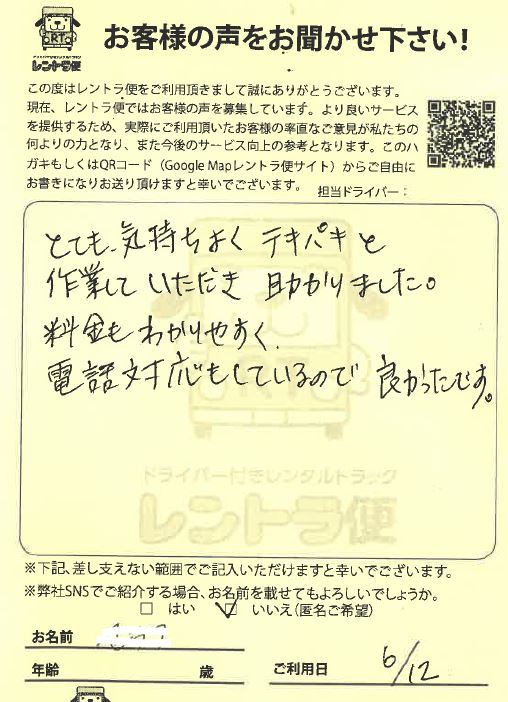 RT
ドライバー付きレンタルトラック
レントラ便
お客様の声をお聞かせ下さい!
この度はレントラ便をご利用頂きまして誠にありがとうございます。
現在、レントラ便ではお客様の声を募集しています。より良いサービス
を提供するため、実際にご利用頂いたお客様の率直なご意見が私たちの
何よりの力となり、また今後のサービス向上の参考となります。このハ
ガキもしくはQRコード（Google Mapレントラ便サイト）からご自由に
お書きになりお送り頂けますと幸いでございます。 担当ドライバー：
とても気持ちよく テキパキと
作業して いただき 助かりました。
料金もわかりやすく、
電話対応もしているので 良かったです。
RT
ドライバー付きレンタルトラック
レントラ便
※下記、差し支えない範囲でご記入いただけますと幸いでございます。
※弊社SNSでご紹介する場合、お名前を載せてもよろしいでしょうか。
□ はい ☑ いいえ(匿名ご希望)
お名前
年齢 歳 ご利用日 6/12